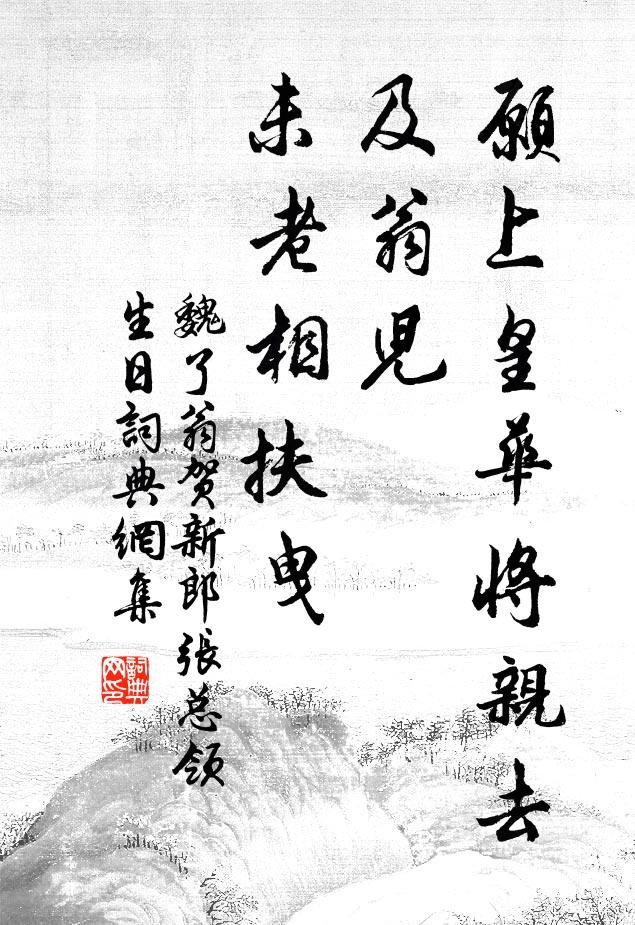 願上皇華將親去
及翁兒
未老相扶曳
魏了翁賀新郎張总領
生日詞典網集
詞典
网印